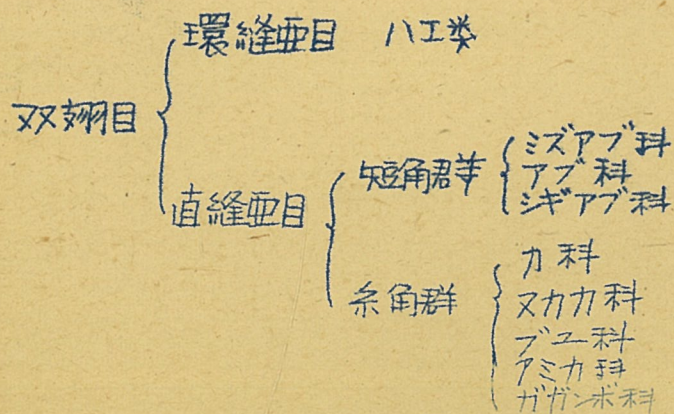 環縫亜目 ハエ类
双翅目
直縫亜目
短角群
ミズアブ科
アブ科
シギアブ科
糸角群
カ科
ヌカカ科
ブユ科
アミカ科
ガガンボ科